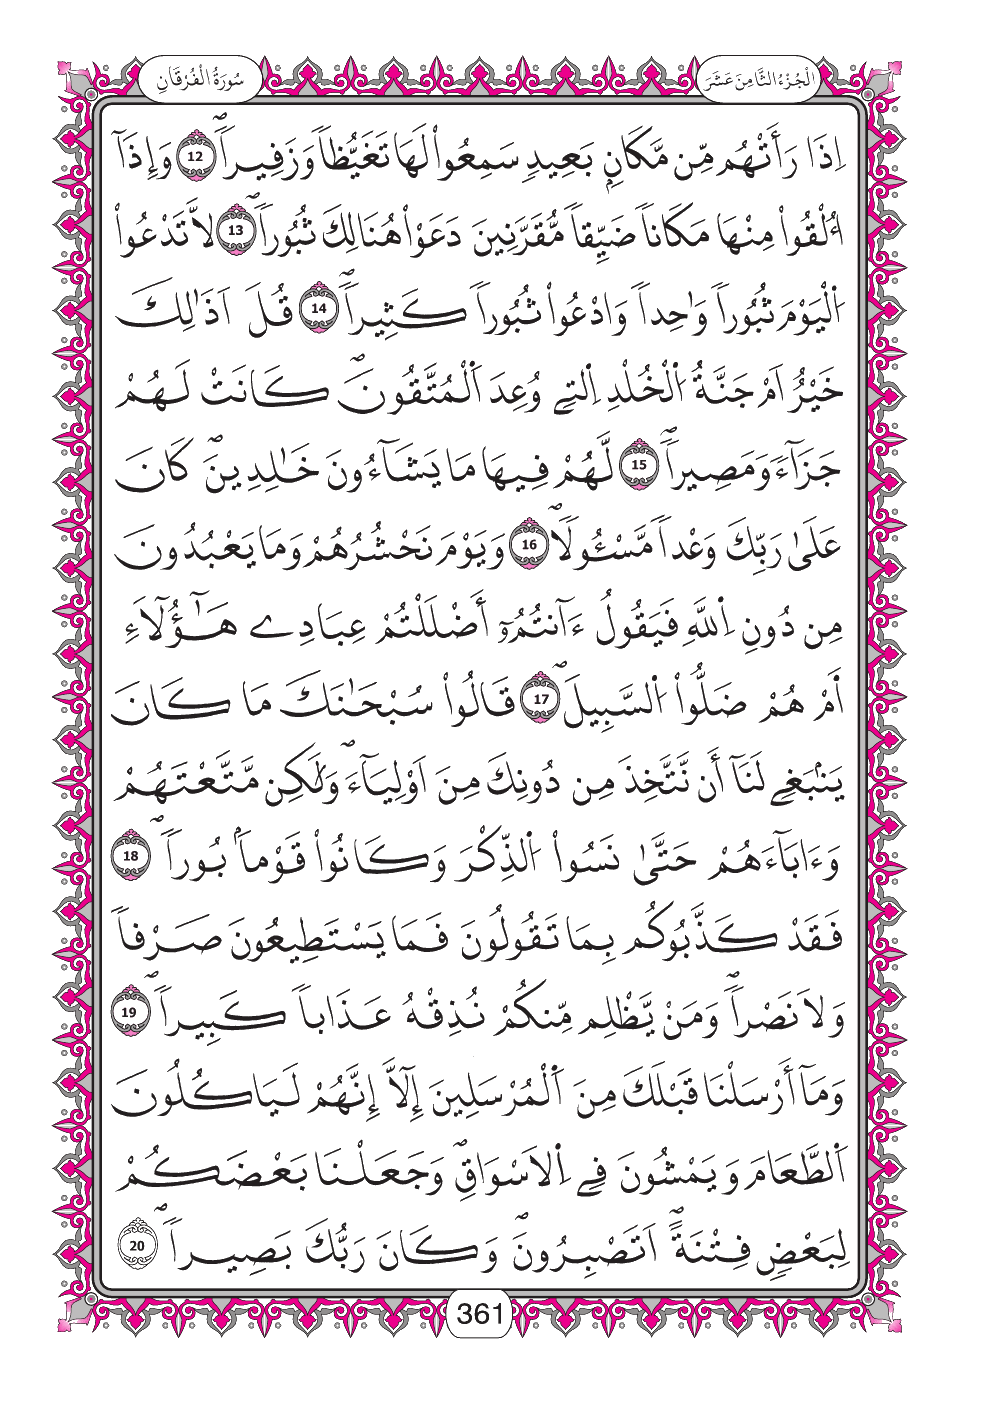 سُورَةُ الْفُرْقَانِ
الْجُزْءُ الثَّامِنَ عَشَرَ
اِذَا رَأَتْهُم مِّن مَّكَانِۢ بَعِيدٖ سَمِعُواْ لَهَا تَغَيُّظاٗ وَزَفِيراٗۖ 12 وَإِذَآ
اُلْقُواْ مِنْهَا مَكَاناٗ ضَيِّقاٗ مُّقَرَّنِينَ دَعَوْاْ هُنَالِكَ ثُبُوراٗۖ 13 لاَّ تَدْعُواْ
اُ۬لْيَوْمَ ثُبُوراٗ وَٰحِداٗ وَادْعُواْ ثُبُوراٗ كَثِيراٗۖ 14 قُلَ اَذَٰلِكَ
خَيْرٌ اَمْ جَنَّةُ اُ۬لْخُلْدِ اِ۬لتِے وُعِدَ اَ۬لْمُتَّقُونَۖ كَانَتْ لَهُمْ
جَزَآءٗ وَمَصِيراٗۖ 15 لَّهُمْ فِيهَا مَا يَشَآءُونَ خَٰلِدِينَۖ كَانَ
عَلَىٰ رَبِّكَ وَعْداٗ مَّسْـُٔولاٗۖ 16 وَيَوْمَ نَحْشُرُهُمْ وَمَا يَعْبُدُونَ
مِن دُونِ اِ۬للَّهِ فَيَقُولُ ءَآنتُمُۥٓ أَضْلَلْتُمْ عِبَادِے هَٰٓؤُلَآءِ
أَمْ هُمْ ضَلُّواْ اُ۬لسَّبِيلَۖ 17 قَالُواْ سُبْحَٰنَكَ مَا كَانَ
يَنۢبَغِے لَنَآ أَن نَّتَّخِذَ مِن دُونِكَ مِنَ اَوْلِيَآءَۖ وَلَٰكِن مَّتَّعْتَهُمْ
وَءَابَآءَهُمْ حَتَّىٰ نَسُواْ اُ۬لذِّكْرَ وَكَانُواْ قَوْماَۢ بُوراٗۖ 18
فَقَدْ كَذَّبُوكُم بِمَا تَقُولُونَ فَمَا يَسْتَطِيعُونَ صَرْفاٗ
وَلاَ نَصْراٗۖ وَمَنْ يَّظْلِم مِّنكُمْ نُذِقْهُ عَذَاباٗ كَبِيراٗۖ 19
وَمَآ أَرْسَلْنَا قَبْلَكَ مِنَ اَ۬لْمُرْسَلِينَ إِلَّآ إِنَّهُمْ لَيَاكُلُونَ
اَ۬لطَّعَامَ وَيَمْشُونَ فِے اِ۬لَاسْوَاقِۖ وَجَعَلْنَا بَعْضَكُمْ
لِبَعْضٖ فِتْنَةًۖ اَتَصْبِرُونَۖ وَكَانَ رَبُّكَ بَصِيراٗۖ 20
361